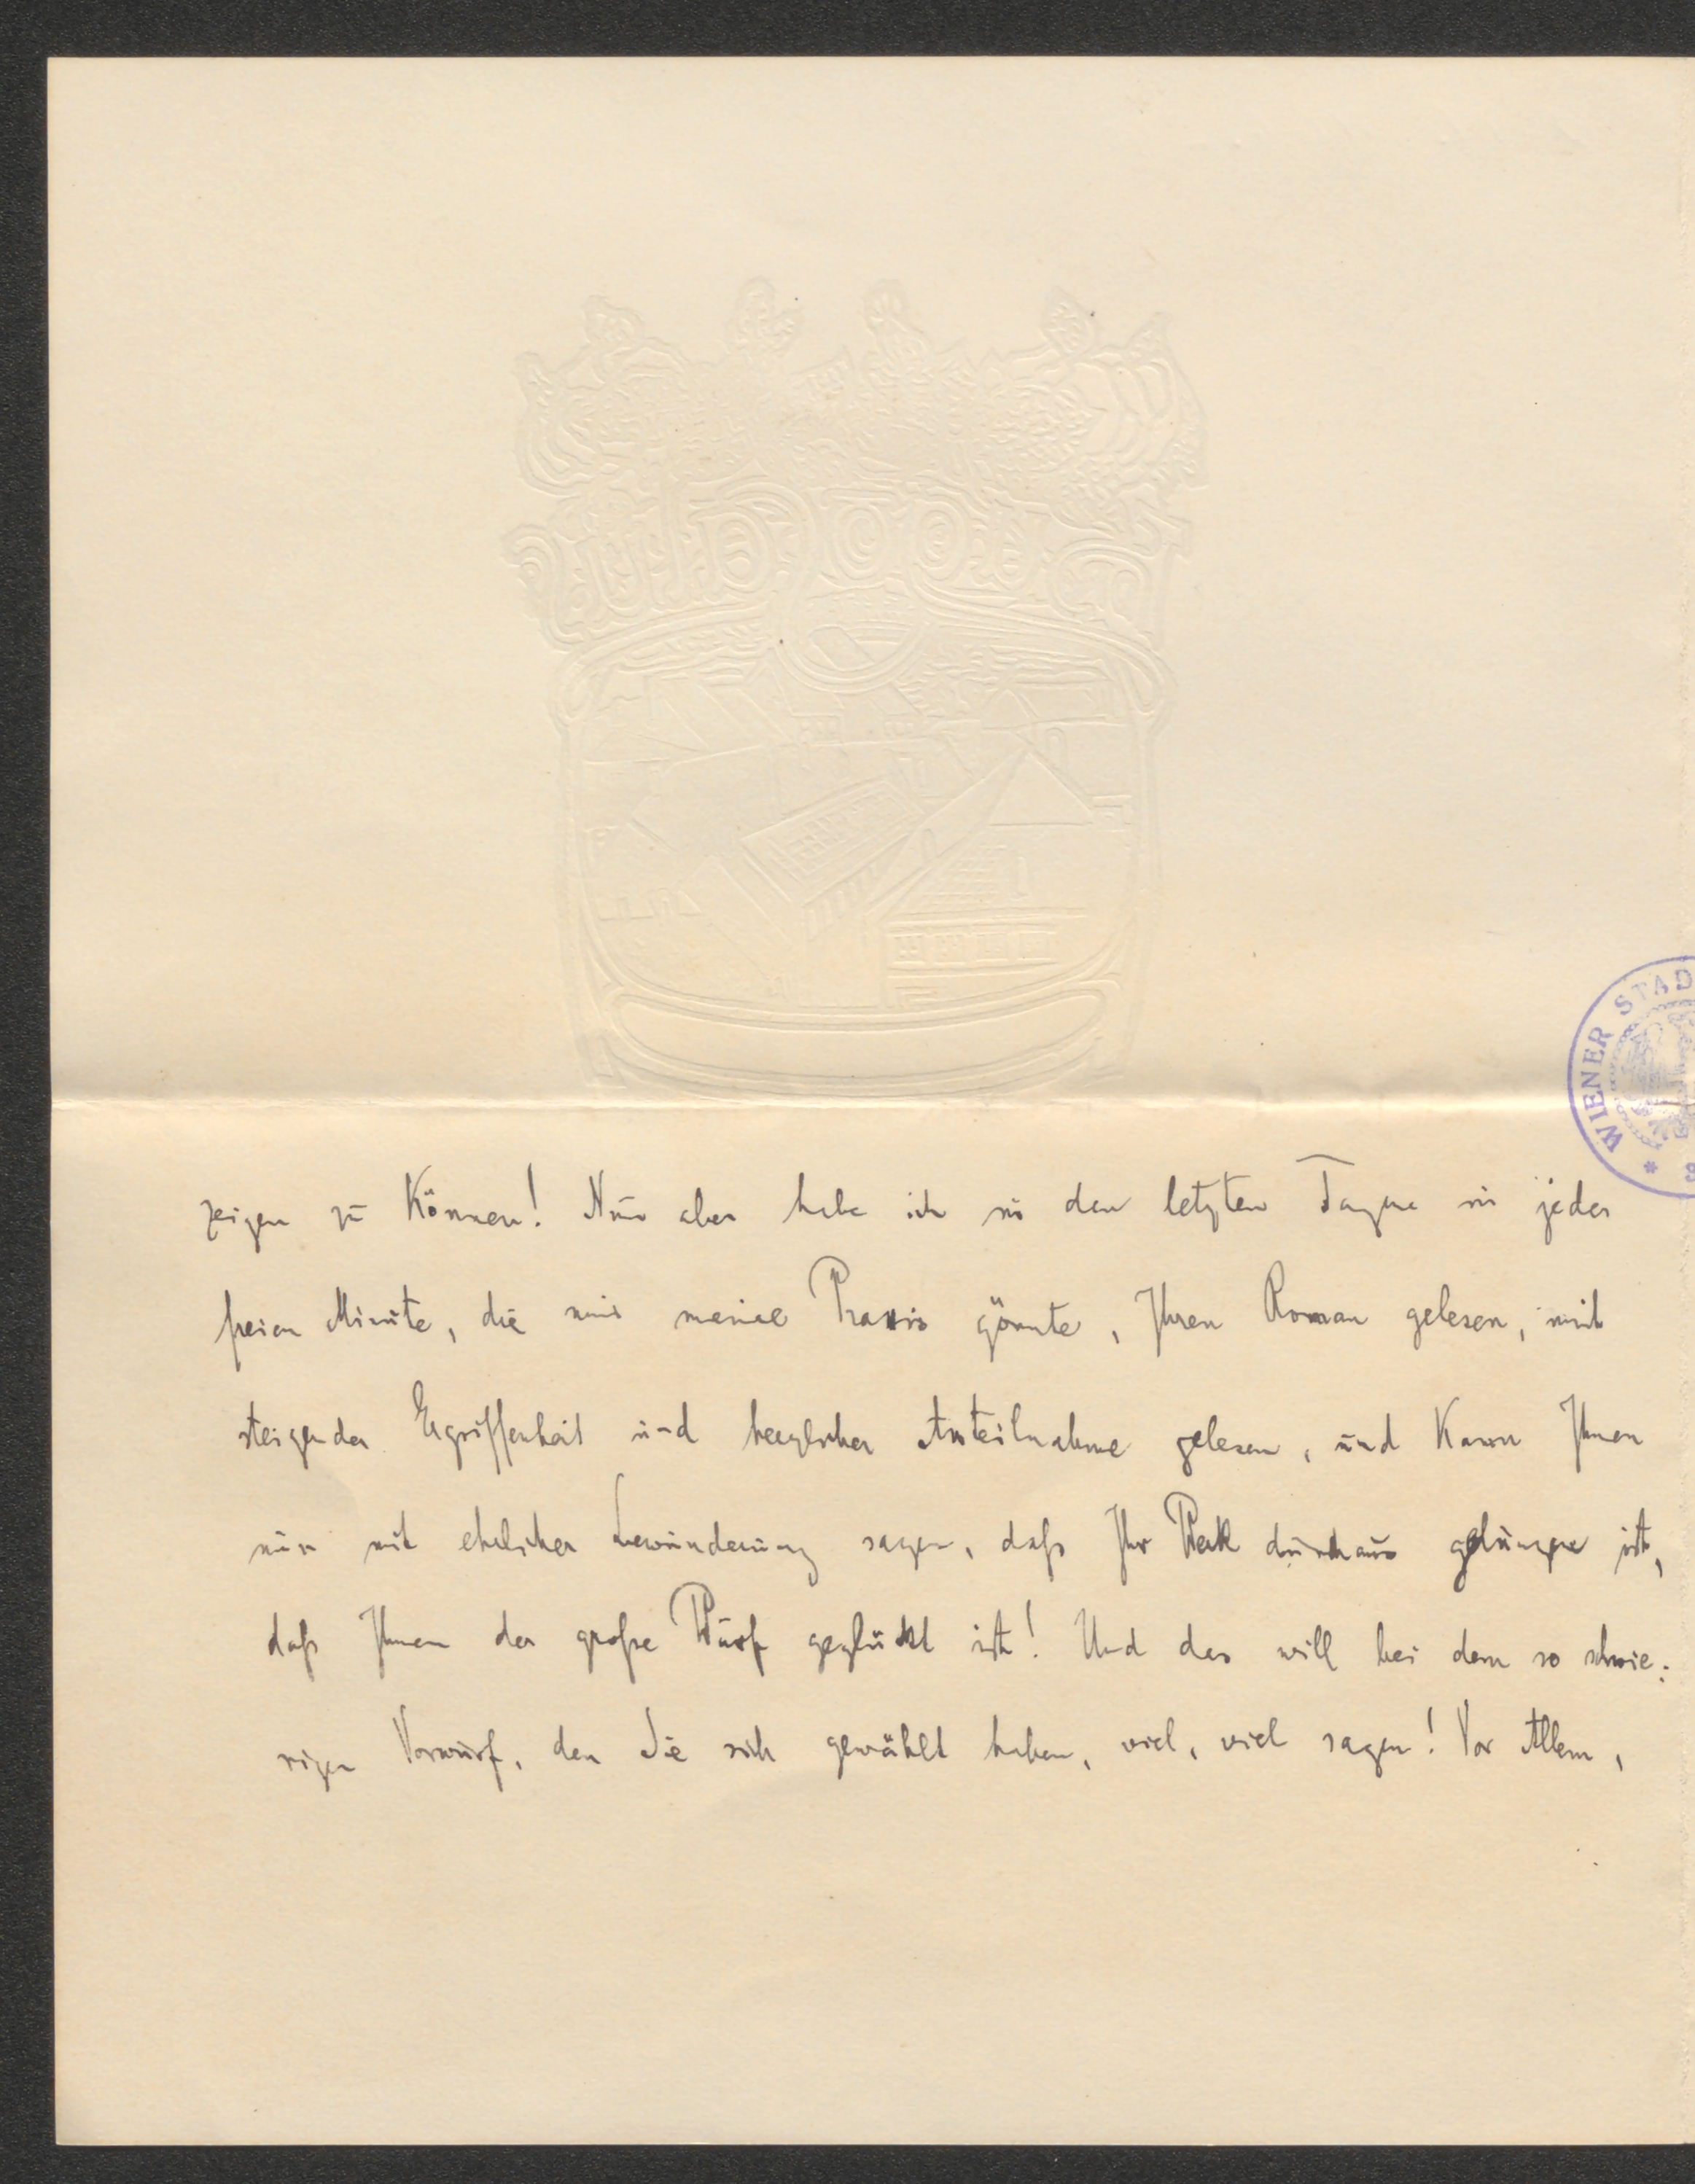 WIENER STAD
zeigen zu können! Nun aber habe ich in den letzten Tagen in jeder
freien Minute, die mir meine Praxis gönnte, Ihren Roman gelesen, mit
steigender Ergriffenheit und herzlicher Anteilnahme gelesen, und kann Ihnen
nun mit ehrlicher Bewunderung sagen, daß Ihr Werk durchaus gelungen ist,
daß Ihnen der große Wurf geglückt ist! Und das will bei dem so schwie:
rigen Vorwurf, den Sie sich gewählt haben, viel, viel sagen! Vor Allem,